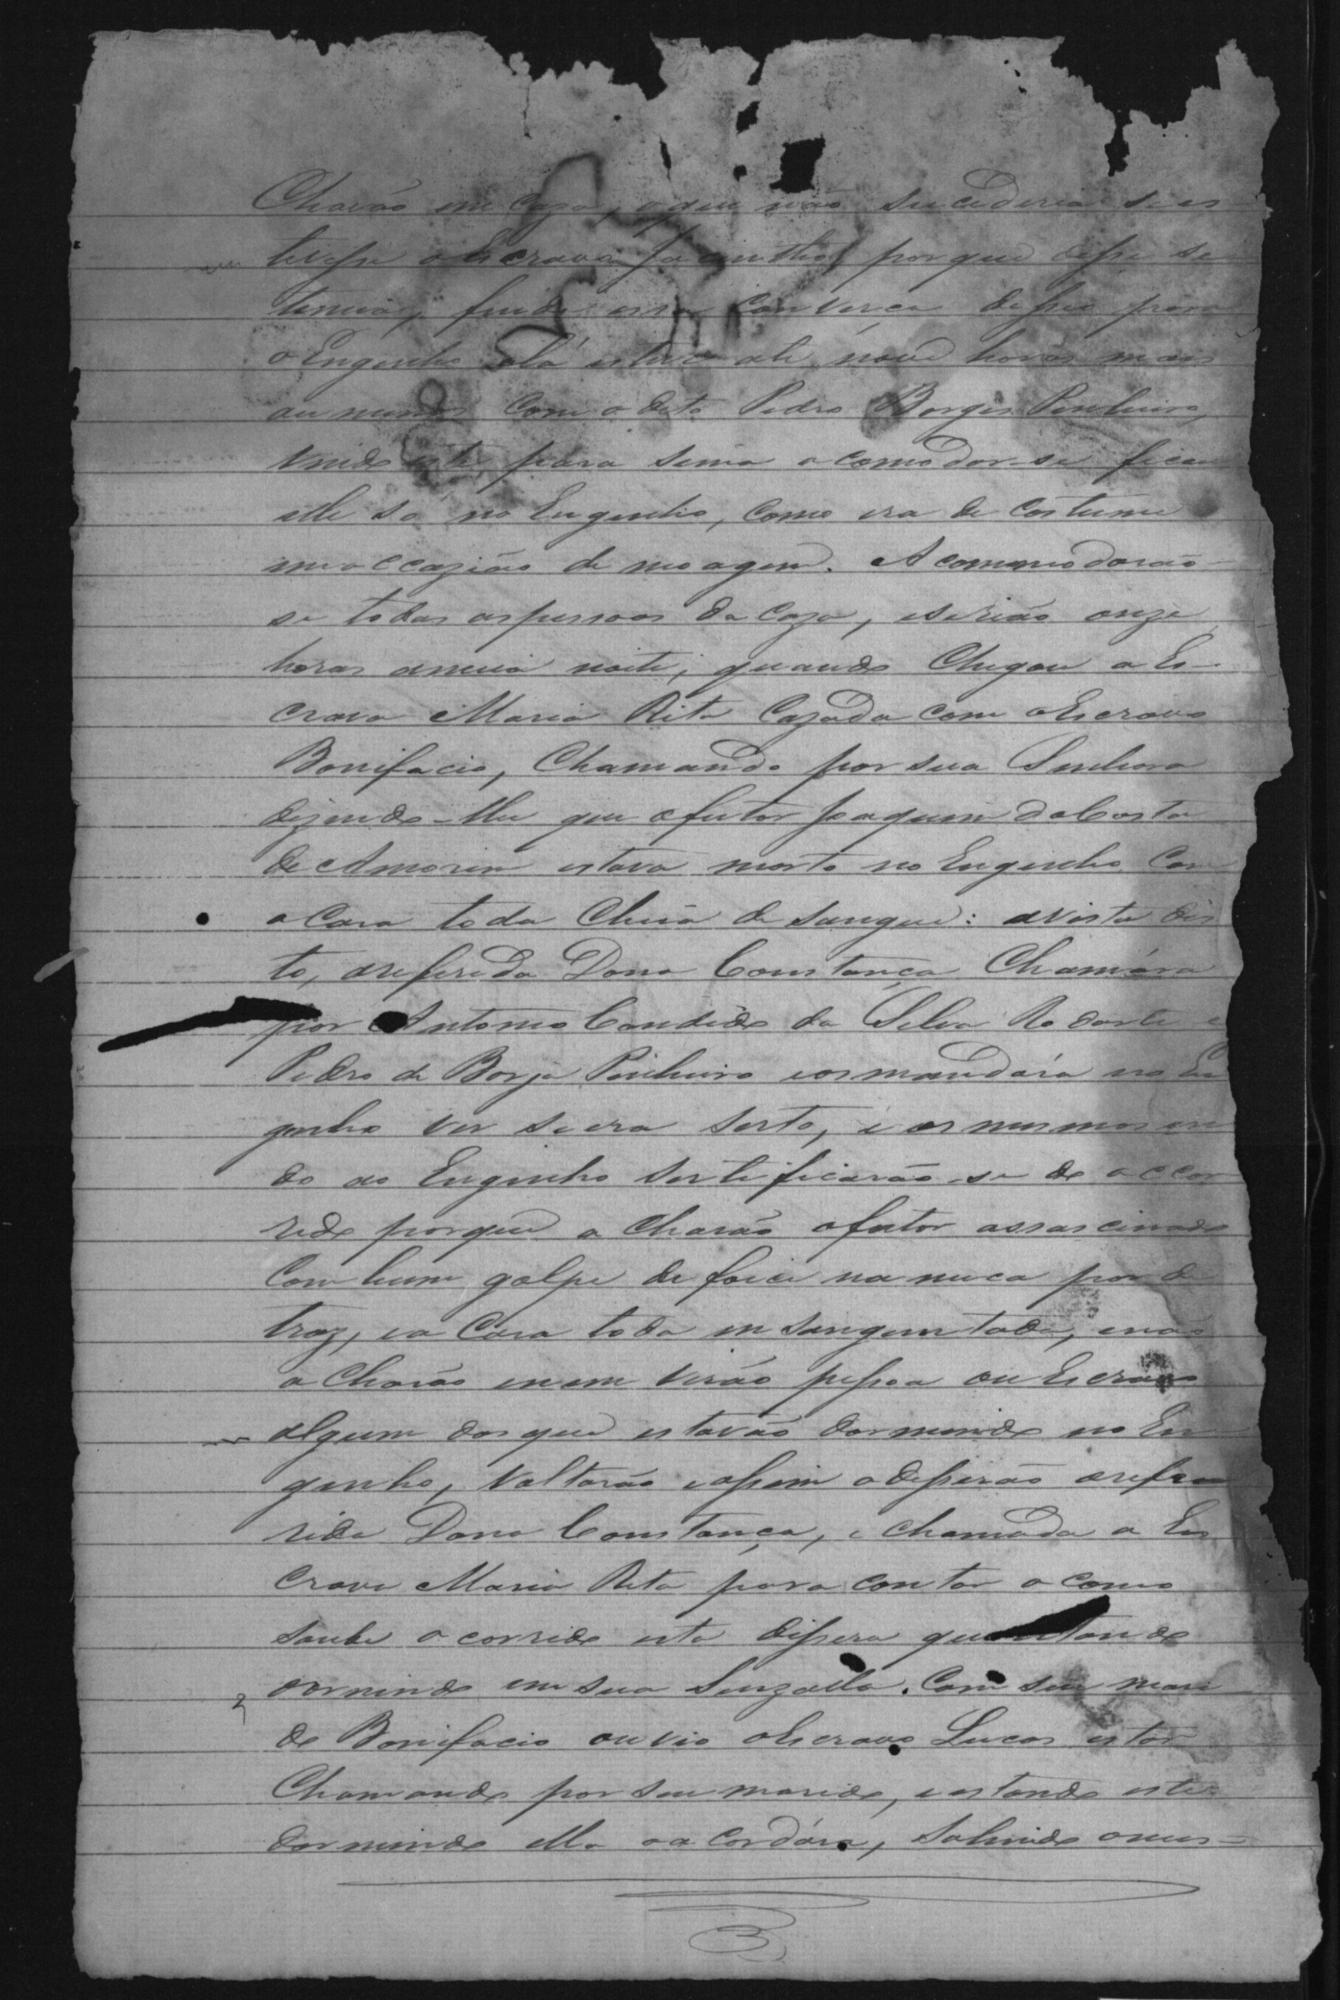 Charão em caza, o que não sucederia si es
tivesse o Escravo Jacintho, porque desse se
temia, finda essa converca desseo para
o Engenho e lá esteve até nove horas mais
ou menos com o dito Pedro Borges Pinheiro,
vindo este para sima acomodar-se ficou
elle só no Engenho, como era de costume
em occazião de moagem. Acommodarão-
se todas as pessoas da caza, e serião onze
horas e meia noite, quando Chegou a Es-
crava Maria Rita Cazada com o Escravo
Bonifacio, Chamando por sua Senhora
dizendo-lhe que o feitor Joaquim da Costa
de Amorim estava morto no Engenho com
a Cara toda Cheia de sangue: a vista dis
to, a referida Dona Constança Chamára
por Antonio Candido da Silva Rodarte e
Pedro de Borja Pinheiro e os mandára no En
genho ver se era serto, e os mesmos in
do ao Engenho sertificarão-se do occor
rido porque acharão o feitor assacinado
Com hum golpe de foice na nuca por de
traz, e a Cara toda ensanguentada, e não
acharão e nem virão pessoa ou Escravo
algum dos que estavão dormindo no En
genho, Voltarão e assim o disserão a refe
rida Dona Constança, e chamada a Es
crava Maria Rita para contar o como
soube o corrido esta dissera que estando
dormindo em sua Senzalla. Com seu mari
do Bonifacio ouvio o Escravo Lucas estar
Chamando por seu marido, e estando este
dormindo ella o acordára, sahindo o mes-